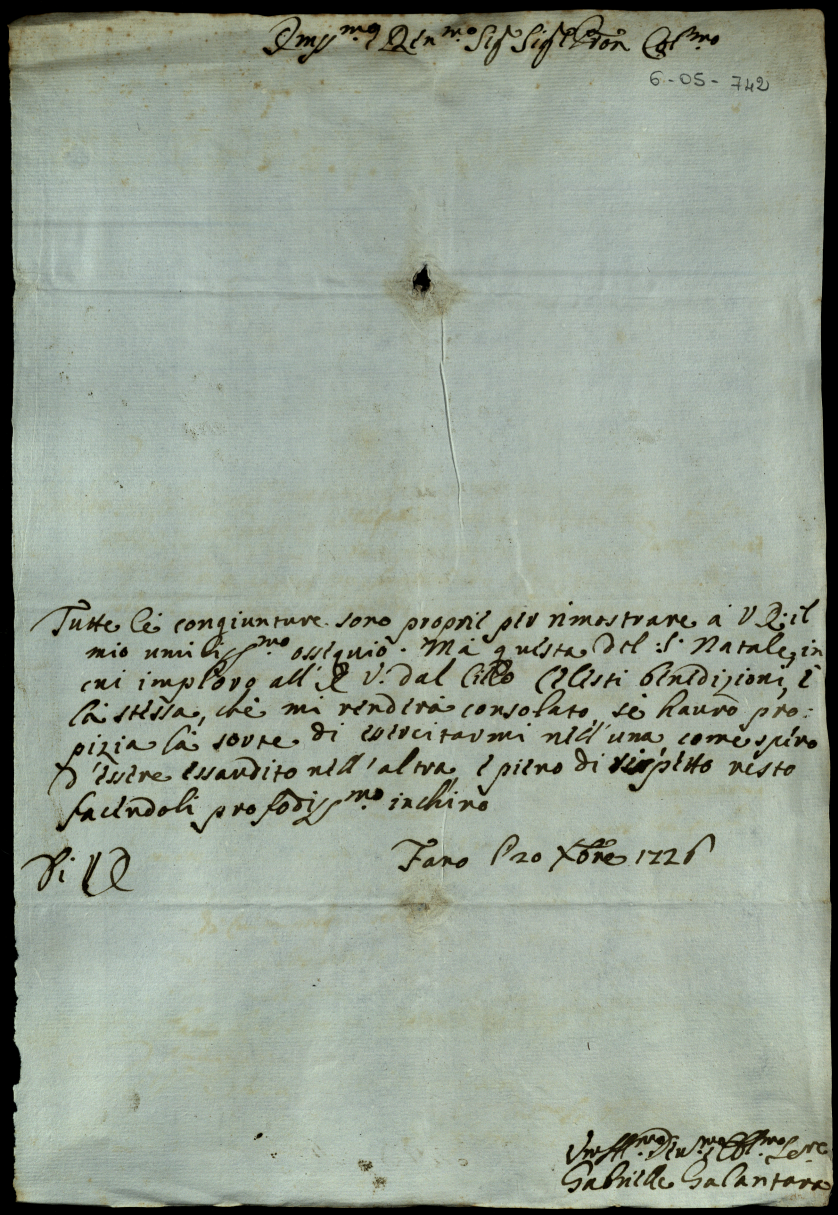 Illmo e Rmo Sig.r Sig.r e Pron Colmo
6-05-742
Tutte le congiunture sono proprie per rimostrare à V R: il
mio umilissmo ossequio. Ma questa del S. Natale, in
cui imploro all' R V: dal Cielo Celesti benedizioni, è
la stessa, che mi renderà consolato, se haurò pro:
pizia la sorte di esercitarmi nell'una come spero
d'essere essaudito nell'altra, e pieno di rispetto resto
facendoli profodissmo inchino
Di V R
Fano li 20 Xbre 1726
Vmillmo Deumo Obbmo Serre
Gabrielle Galantara